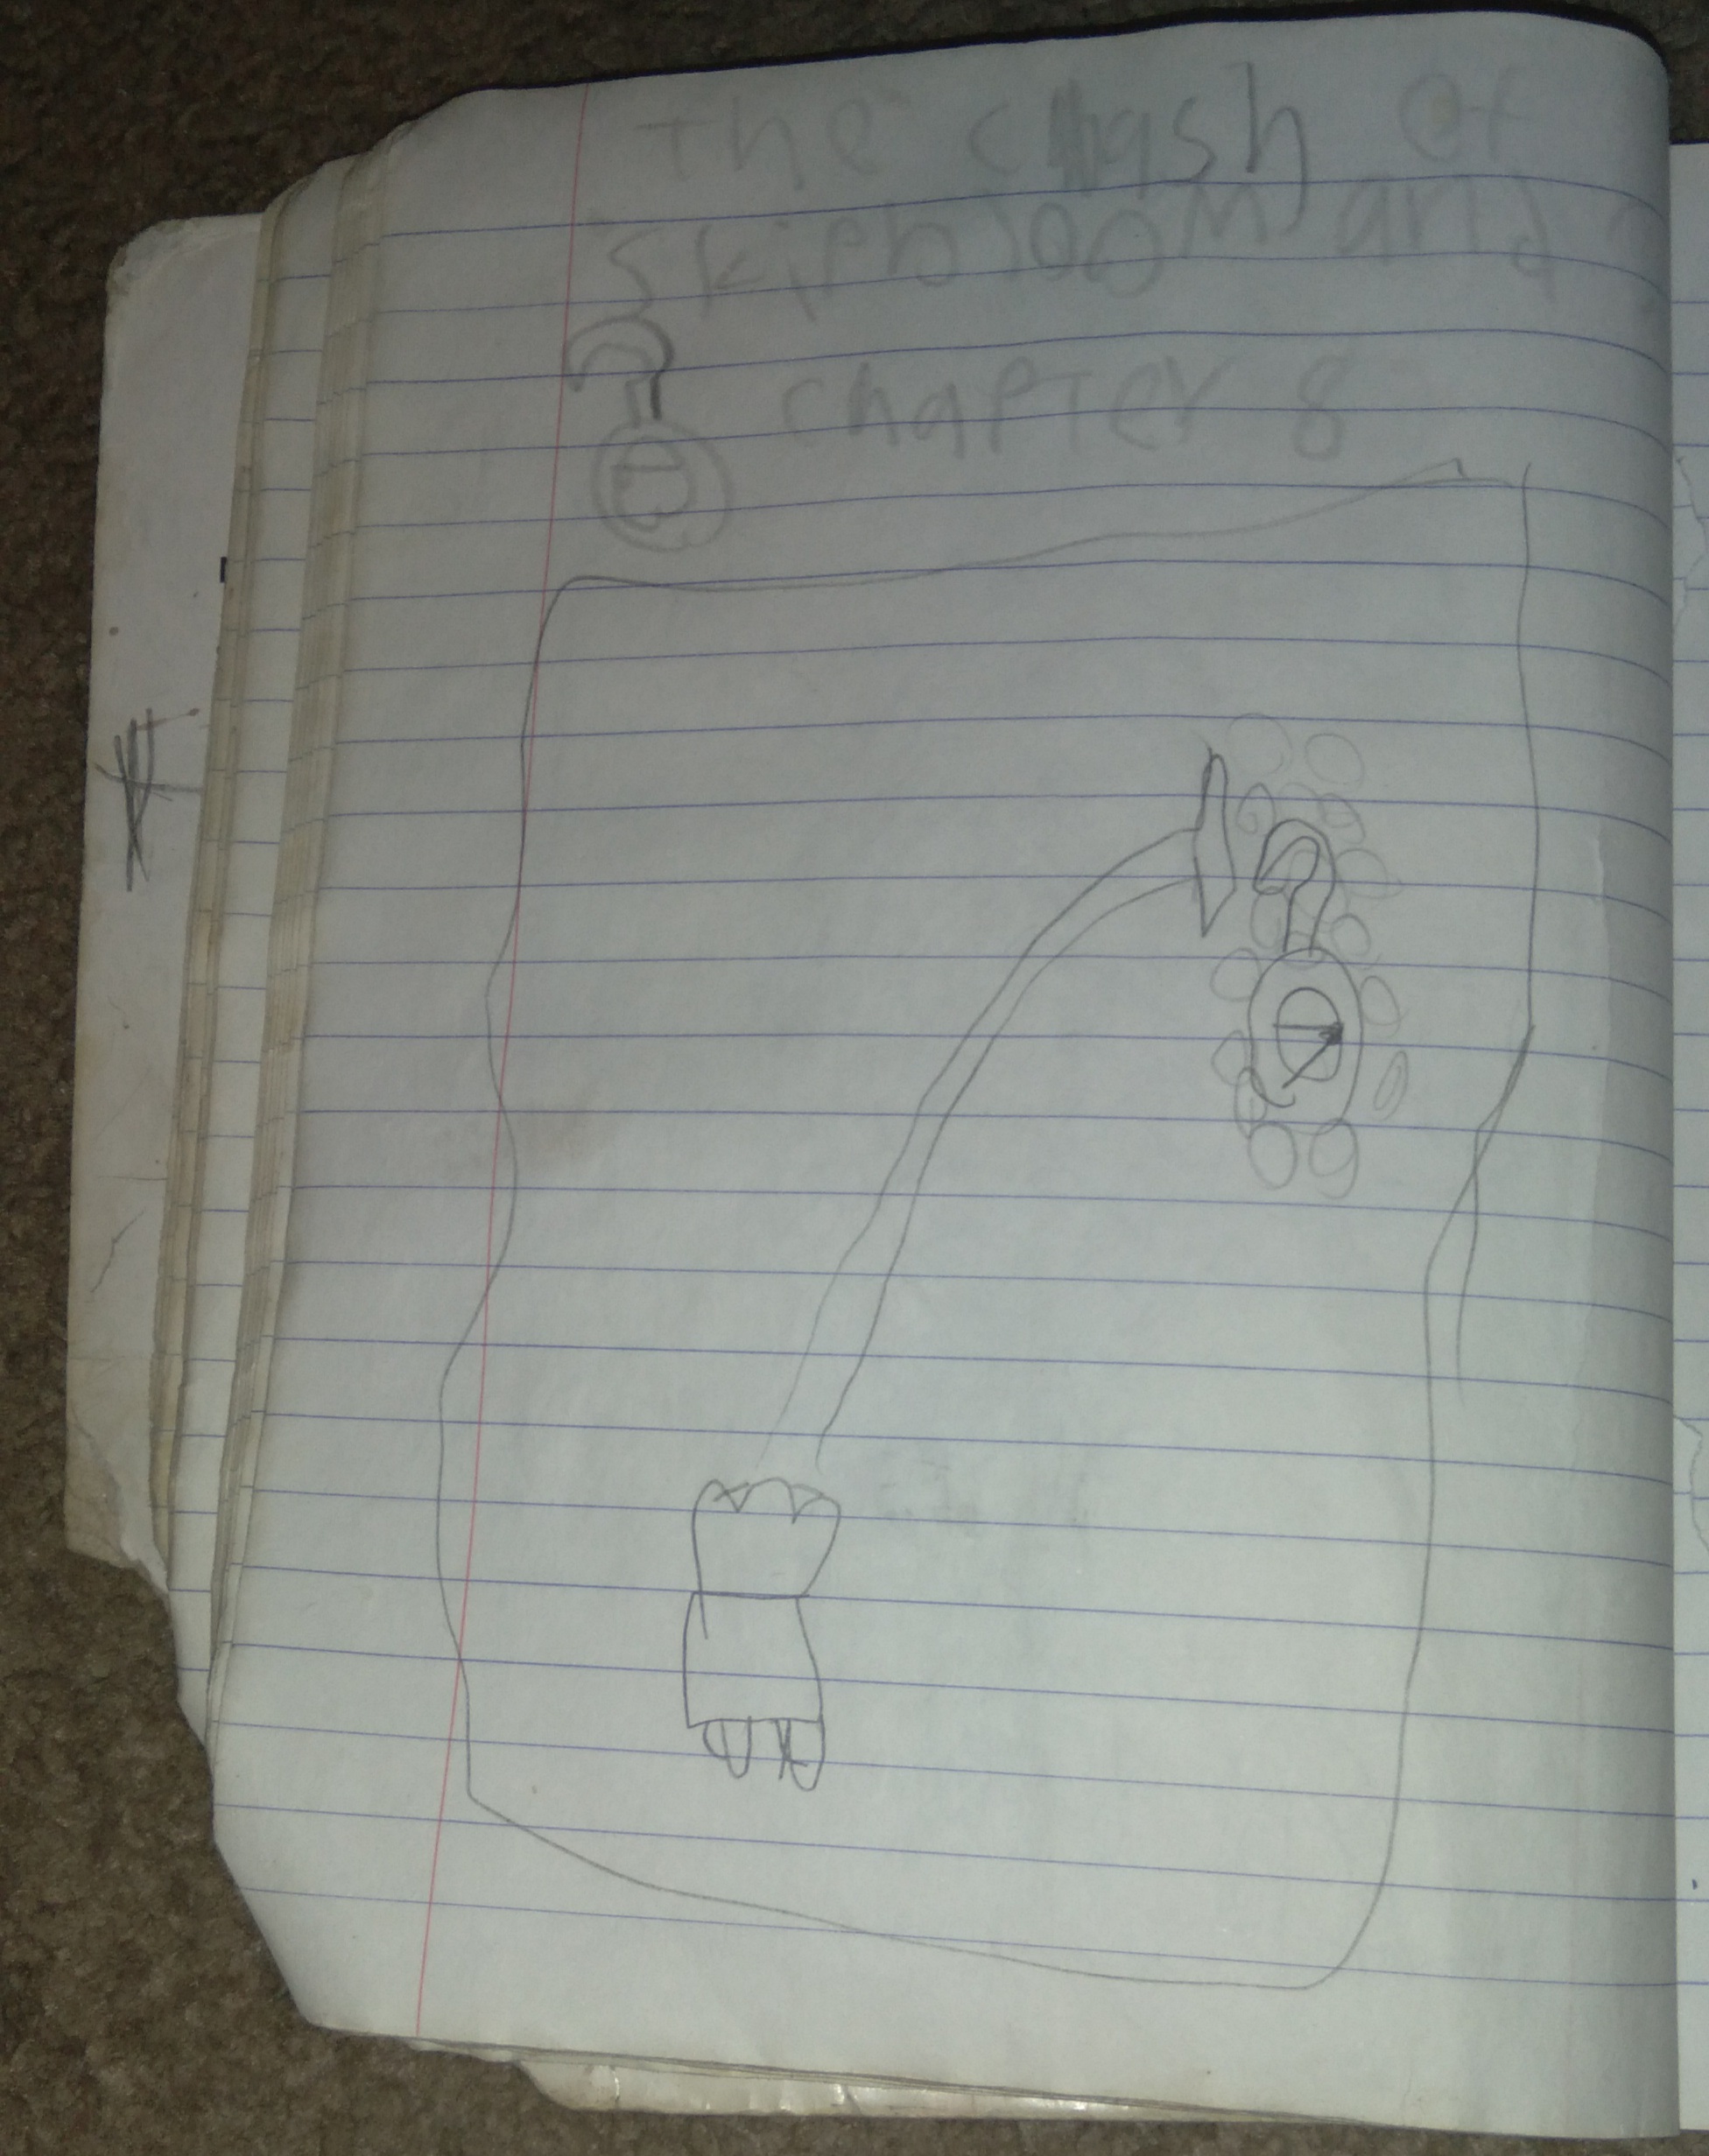 The clash of
skiploom and
chapter 8